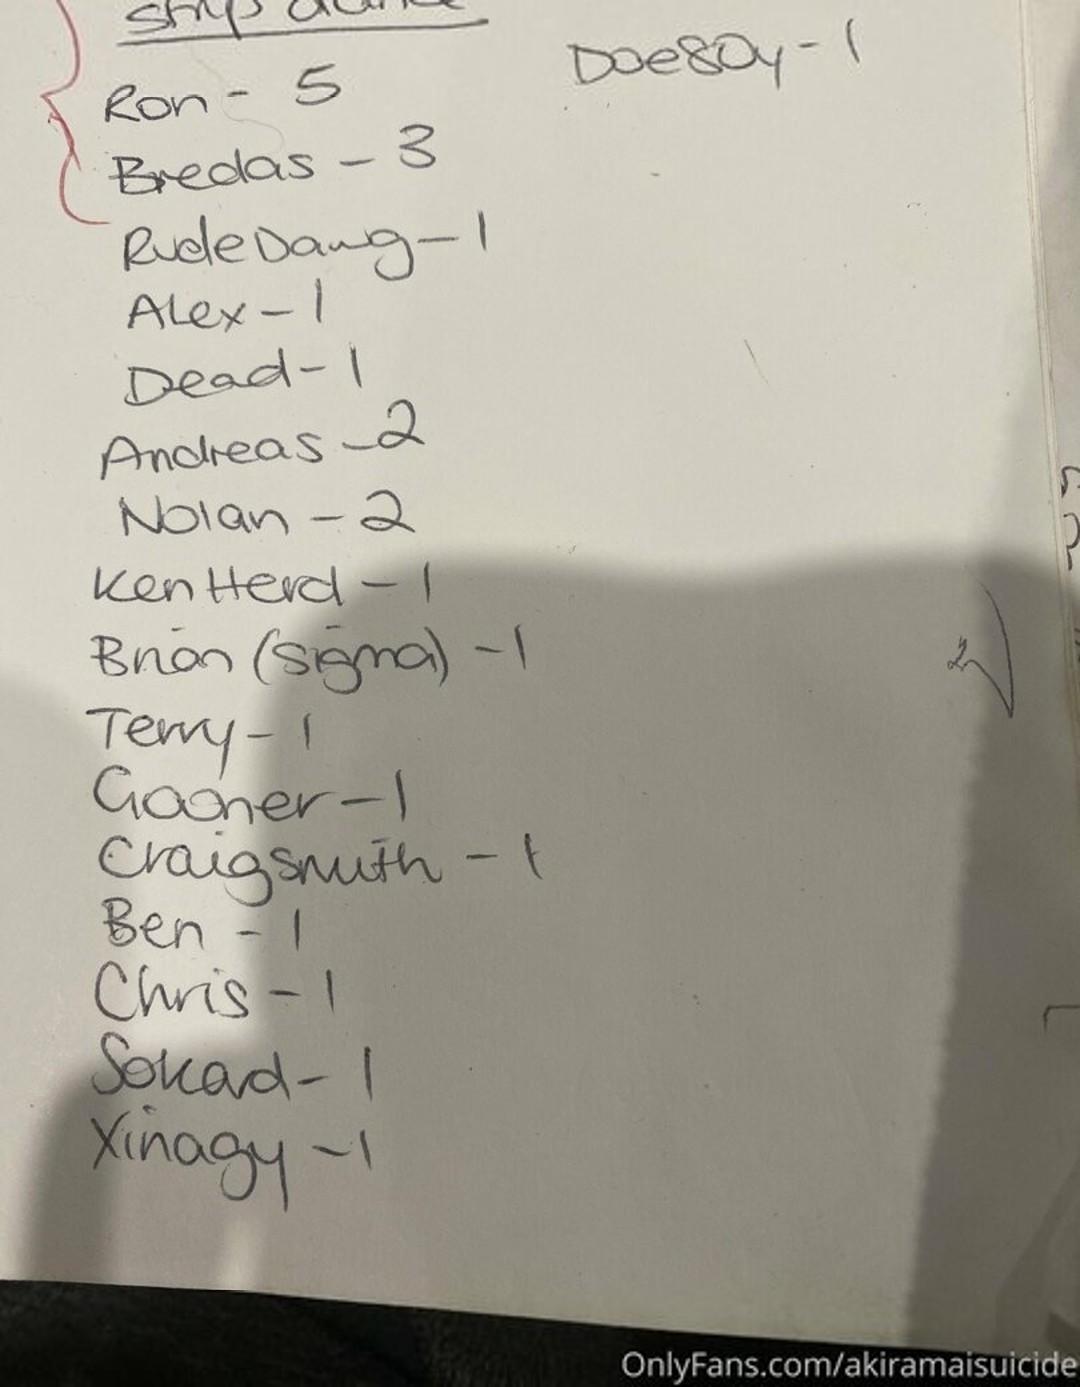 strip dance
Ron - 5
Bredas - 3
RudeDawg - 1
Alex - 1
Dead - 1
Andreas - 2
Nolan - 2
Ken Herd - 1
Brian (sigma) - 1
Terry - 1
Gagner - 1
Craigsmith - 1
Ben - 1
Chris - 1
Sokad - 1
Xinagy - 1
Doe80y - 1
OnlyFans.com/akiramaisuicide